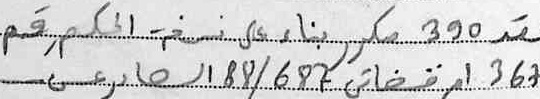 عقد 390 مكرر بناء على نسخة الحكم رقم
367 ام قضائى 88/687 الصادر عن